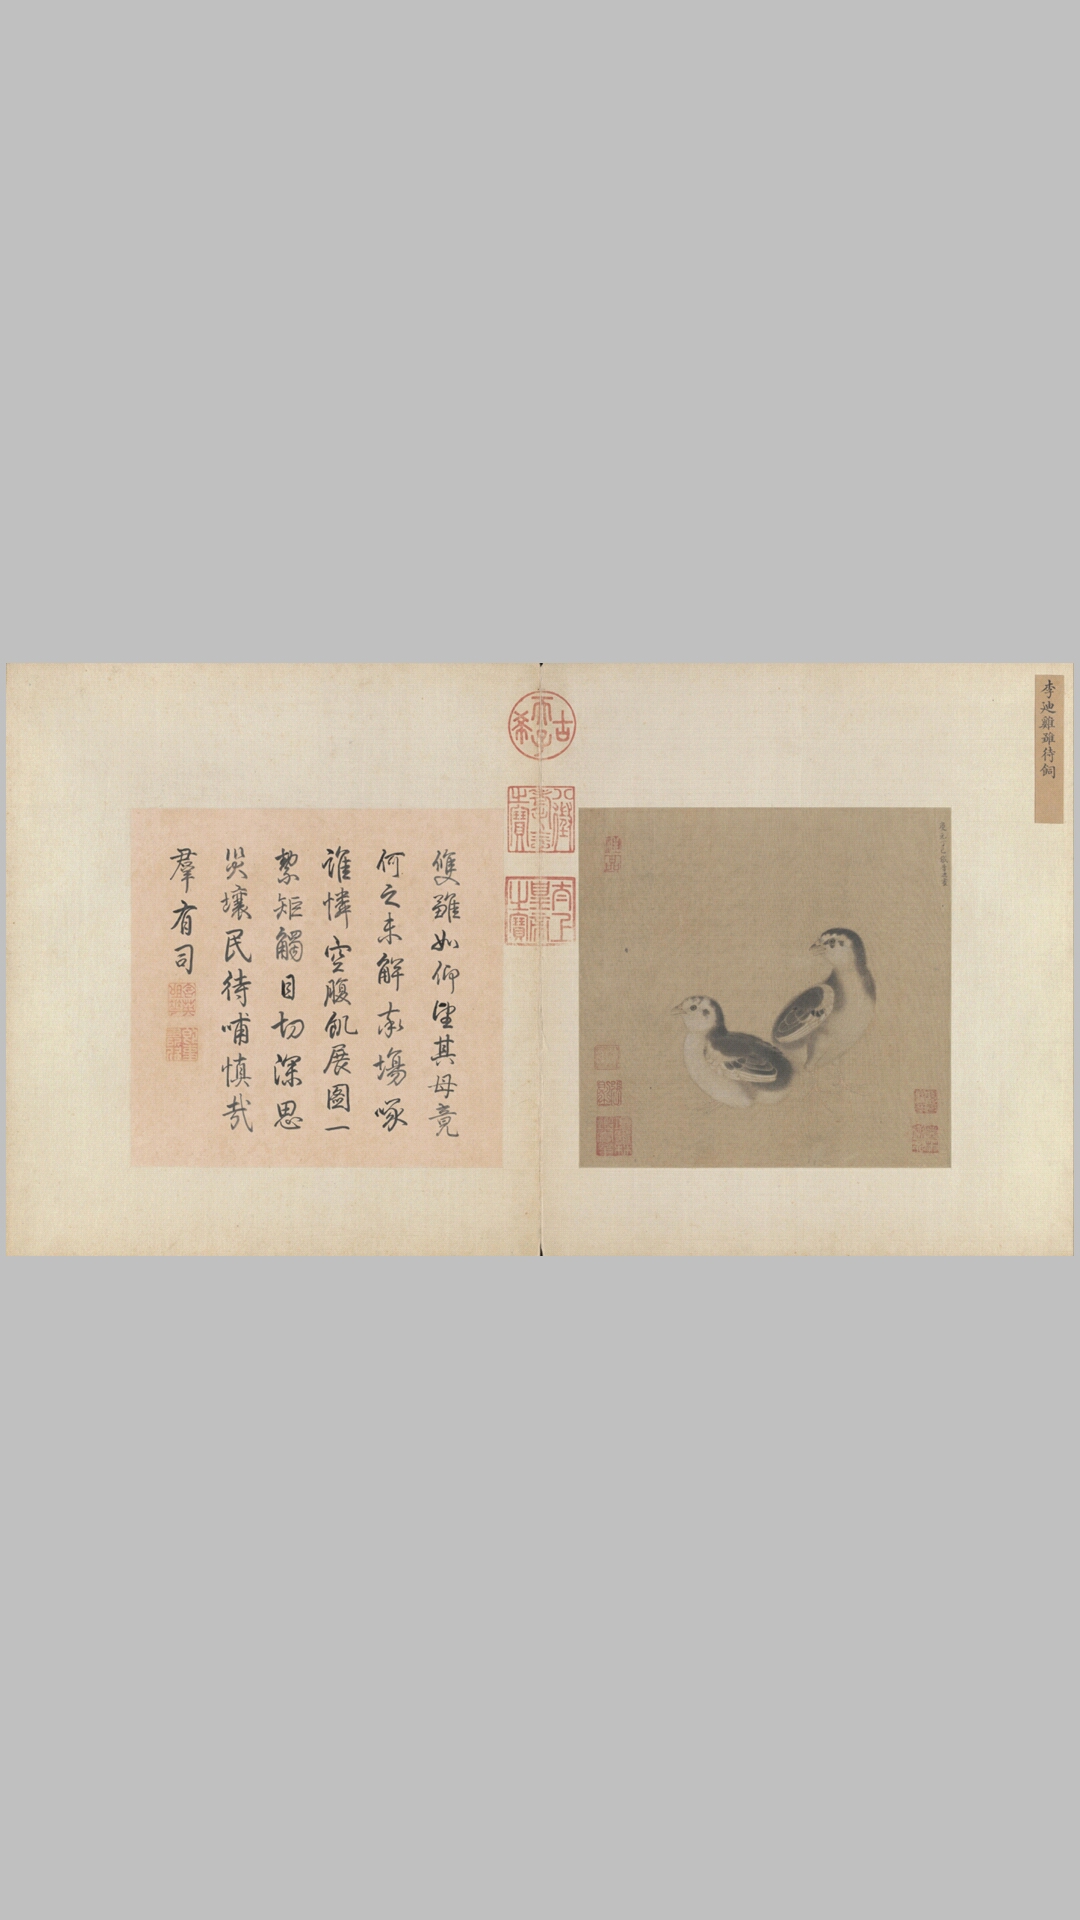 李迪雞雛待飼
慶元丁巳歲李迪畫
古希天子
八徵耄念之寶
太上皇帝之寶
雙雛如仰望其母竟
何之未解奔場啄
誰憐空腹飢展圖一
絜矩觸目切深思
災壤民待哺慎哉
羣有司